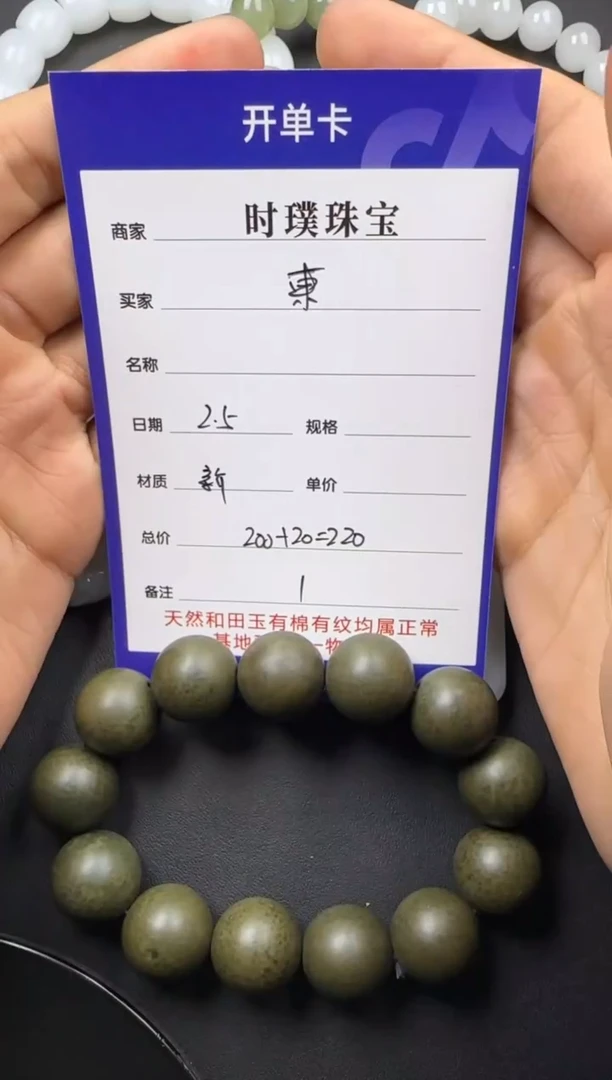 开单卡
商家 时璞珠宝
买家 東
名称
日期 2.5 规格
材质 新 单价
总价 200+20=220
备注 1
天然和田玉有棉有纹均属正常
基地